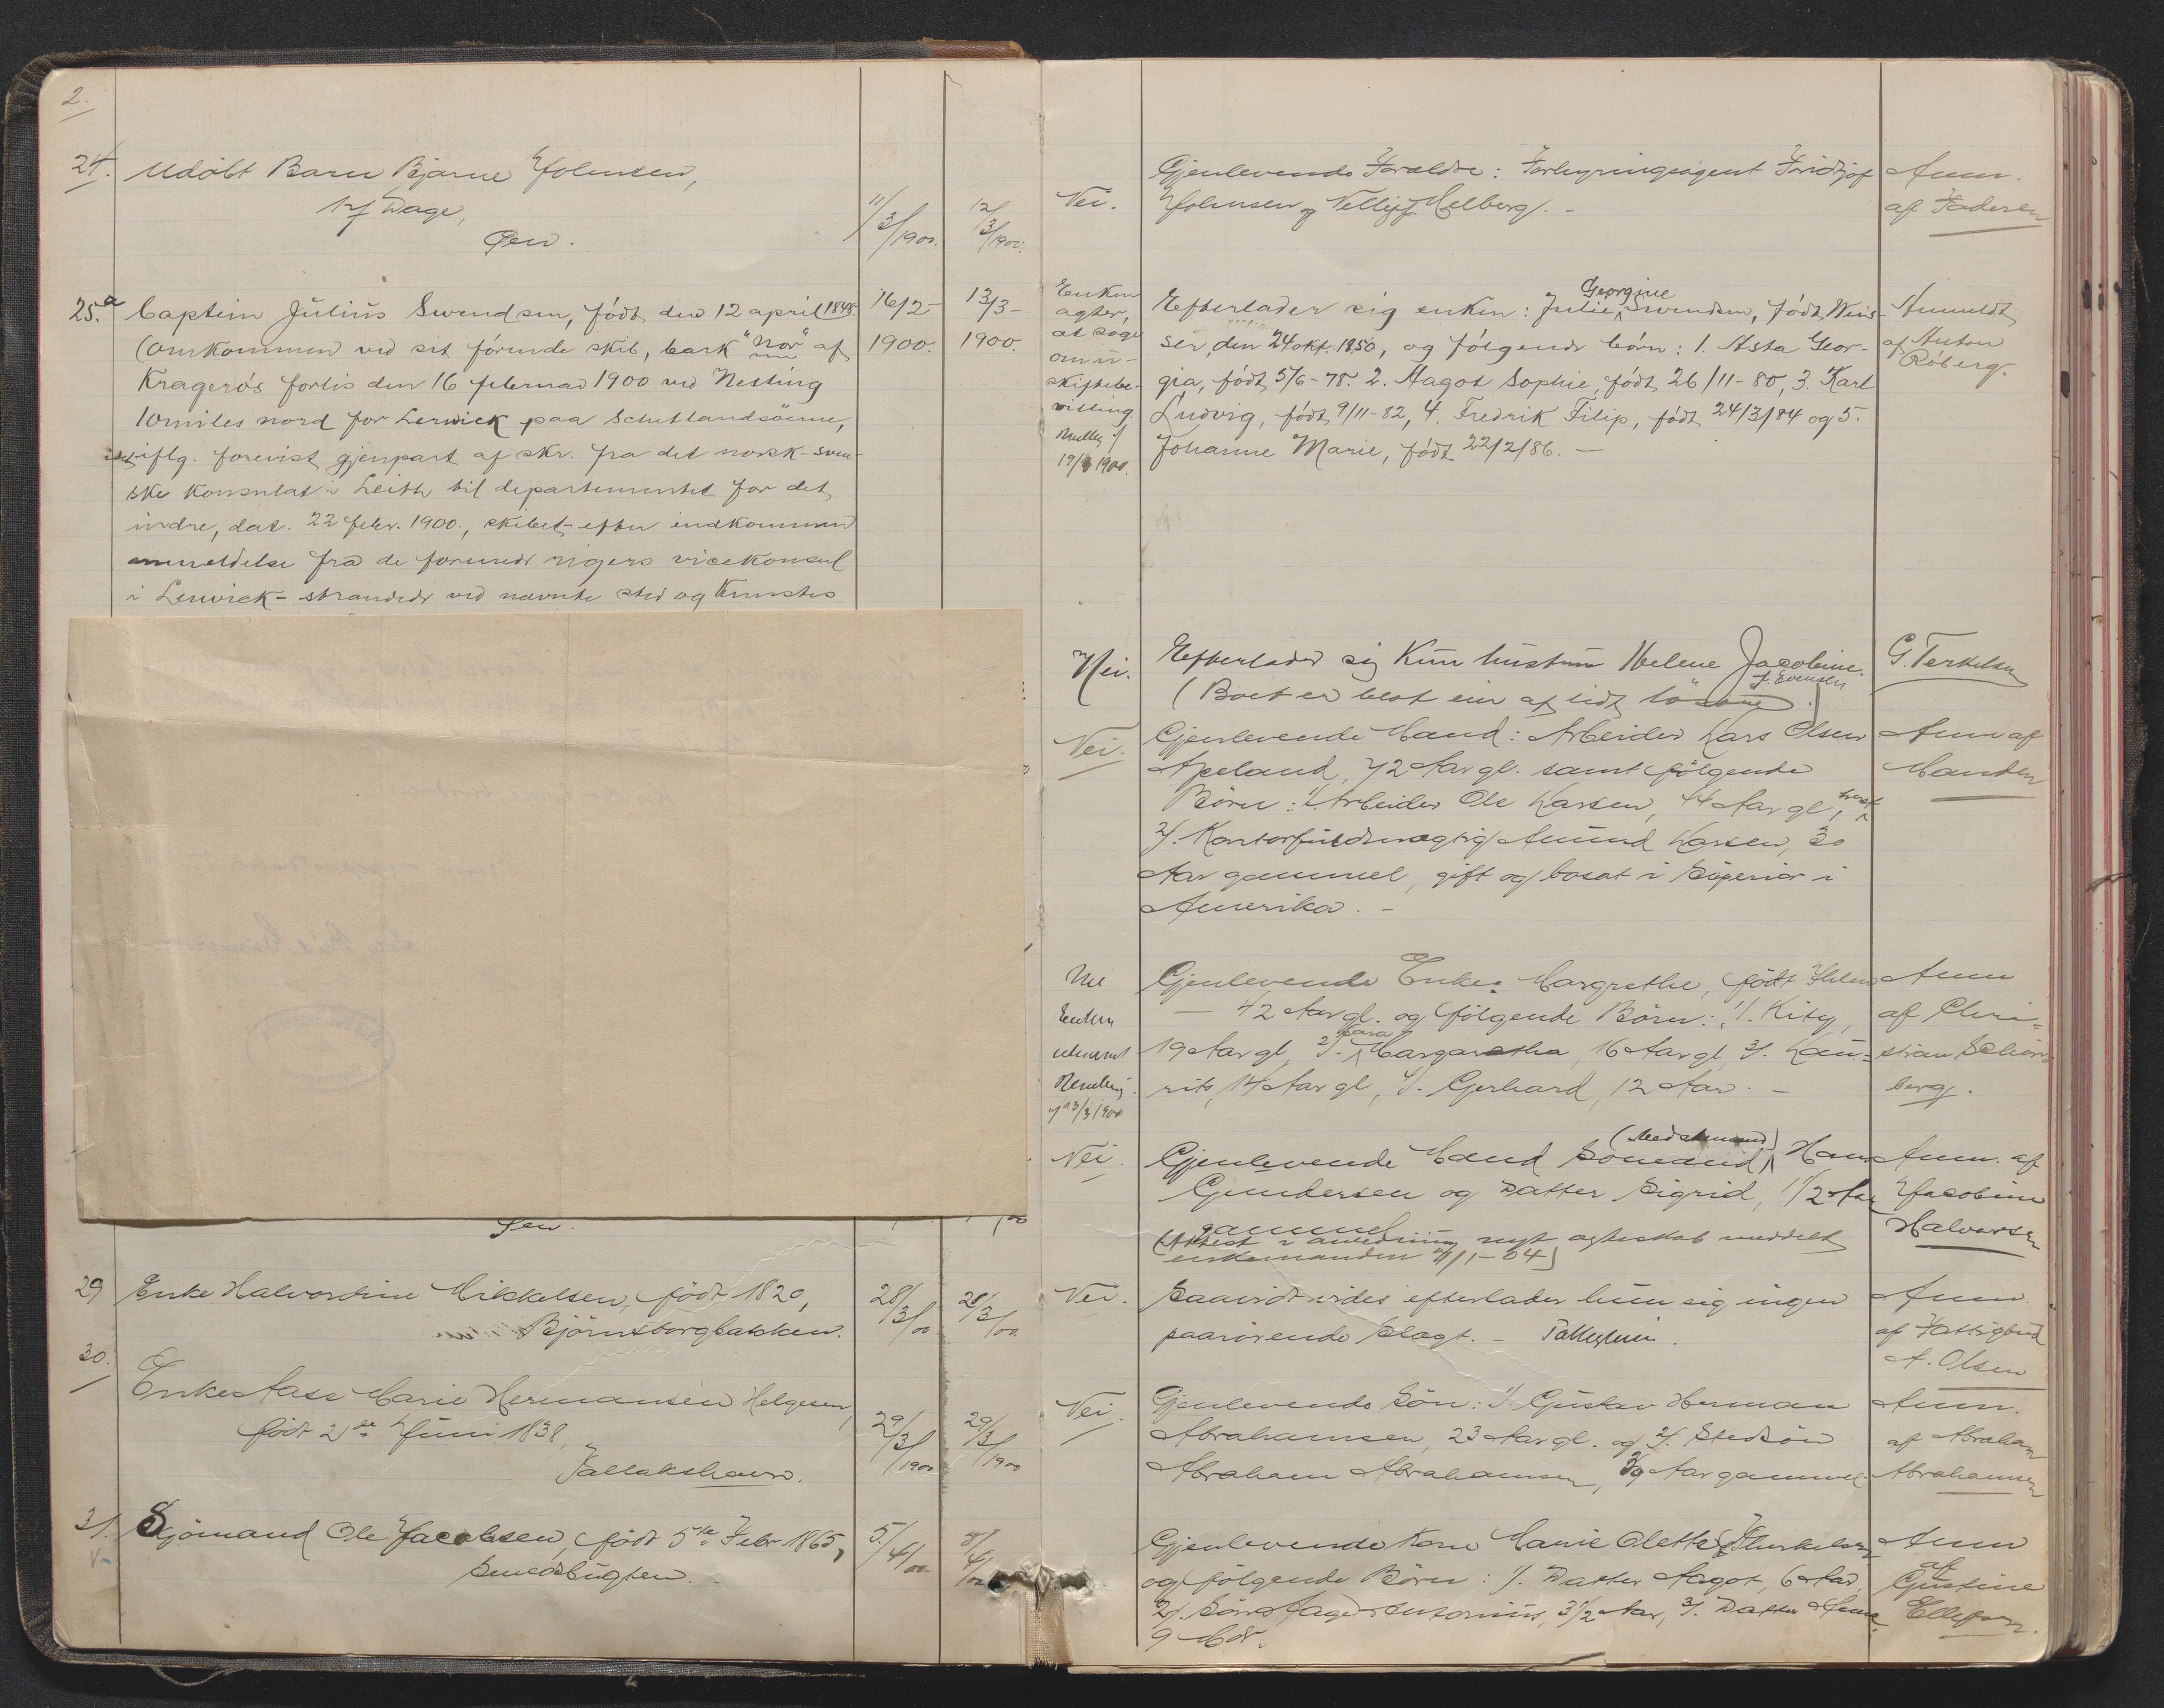 2.
24. Udöbt Barn Bjarne Johnsen,
17 Dage,
Öen.
11/3/1900.
12/3/1900.
25.a Captein Julius Svendsen, född den 12 april 1848.
(Omkommen ved sit förende skib, bark "Nor" af
Kragerös forlis den 16 februar 1900 ved Nesting
10 miles nord for Lerwick paa Schetlandsöerne,
iflg. forevist gjenpart af skr. fra det norsk-sven-
ske Konsulat i Leith til departementet for det
indre, dat. 22 febr. 1900., skibet efter indkommen
anmeldelse fra de forenede rigers vicekonsul
i Lerwick - strandede ved nævnte sted og knustes
16/2- 1900.
13/3- 1900.
Öen.
29 Enke Halvordine Mikkelsen, född 1820,
Björnsborgbakken.
28/3/00.
28/3/00.
30. Enke Aase Marie Hermansen Helgesen,
född 2de Juni 1838,
Jallakshavn.
29/3/1900
29/3/1900
31. Sjömand Ole Jacobsen, född 5te Febr 1865,
5/4/00.
5/4/00
Vei.
Gjenlevende Forældre: Forhyringsagent Fridtjof
Johnsen og Nelly f. Melberg. -
Anm.
af Faderen
Enken
agter
at söge
om u-
skiftebe-
villing.
19/3 1900.
Efterlader sig enken: Julie Georgine Svendsen, född Weis-
ser, den 24 okt. 1850, og fölgende börn: 1. Asta Geor-
gia, född 5/6-78. 2. Aagot Sophie, född 26/11-80, 3. Karl
Ludvig, född 9/11-82, 4. Fredrik Filip, född 24/3/84 og 5.
Johanne Marie, född 22/2/86. -
Anmeldt
af Anton
Röberg.
Nei.
Efterlader sig kun hustru Helene Jacobine
f. Evensen
(Boet er blot ein af lidt lösöre.)
G. Terkelsen
Nei.
Gjenlevende Mand: Arbeider Lars Olsen
Apeland, 72 Aar gl. samt fölgende
Börn: 1/. Arbeider Ole Larsen, 44 Aar gl,
2/. Kontorfuldmægtig Amund Larsen, 30
Aar gammel, gift og bosat i Superior i
Amerika. -
Anm af
Manden
Gjenlevende Enke: Margrethe, född
- 42 Aar gl. og fölgende Börn: 1/. Kity,
19 Aar gl, 2/. Margaretha, 16 Aar gl, 3/. Lau-
rits, 14 Aar gl, 4/. Gerhard, 12 Aar. -
Enken
13/3 1900
Anm
af Chri-
stian Schön-
berg.
Nei.
Gjenlevende Mand Sömand (Bedstemand) Hans
Gundersen og Datter Sigrid, 1 1/2 Aar
gammel
(Attest i anledning nyt ægteskab meddelt
enkemanden 4/1-04)
Anm. af
Jacobine
Halvorsen
Nei.
Saavidt vides efterlader hun sig ingen
paarörende Slægt. -
Anm.
af Fattigbud
A. Olsen
Nei.
Gjenlevende Sön: 1/. Gustav Herman
Abrahamsen, 23 Aar gl. og 2/. Stedsön
Abraham Abrahamsen, Aar gammel.
Anm.
af Abraham
Abrahamsen
Gjenlevende Kone Marie Olette f. Thorkelsen
og fölgende Börn: 1/. Datter Aagot, 6 Aar,
2/. Sön Aage Antonius, 3 1/2 Aar, 3/. Datter Anna
9 Mdr.
Anm
af
Gustine
Ellefsen.